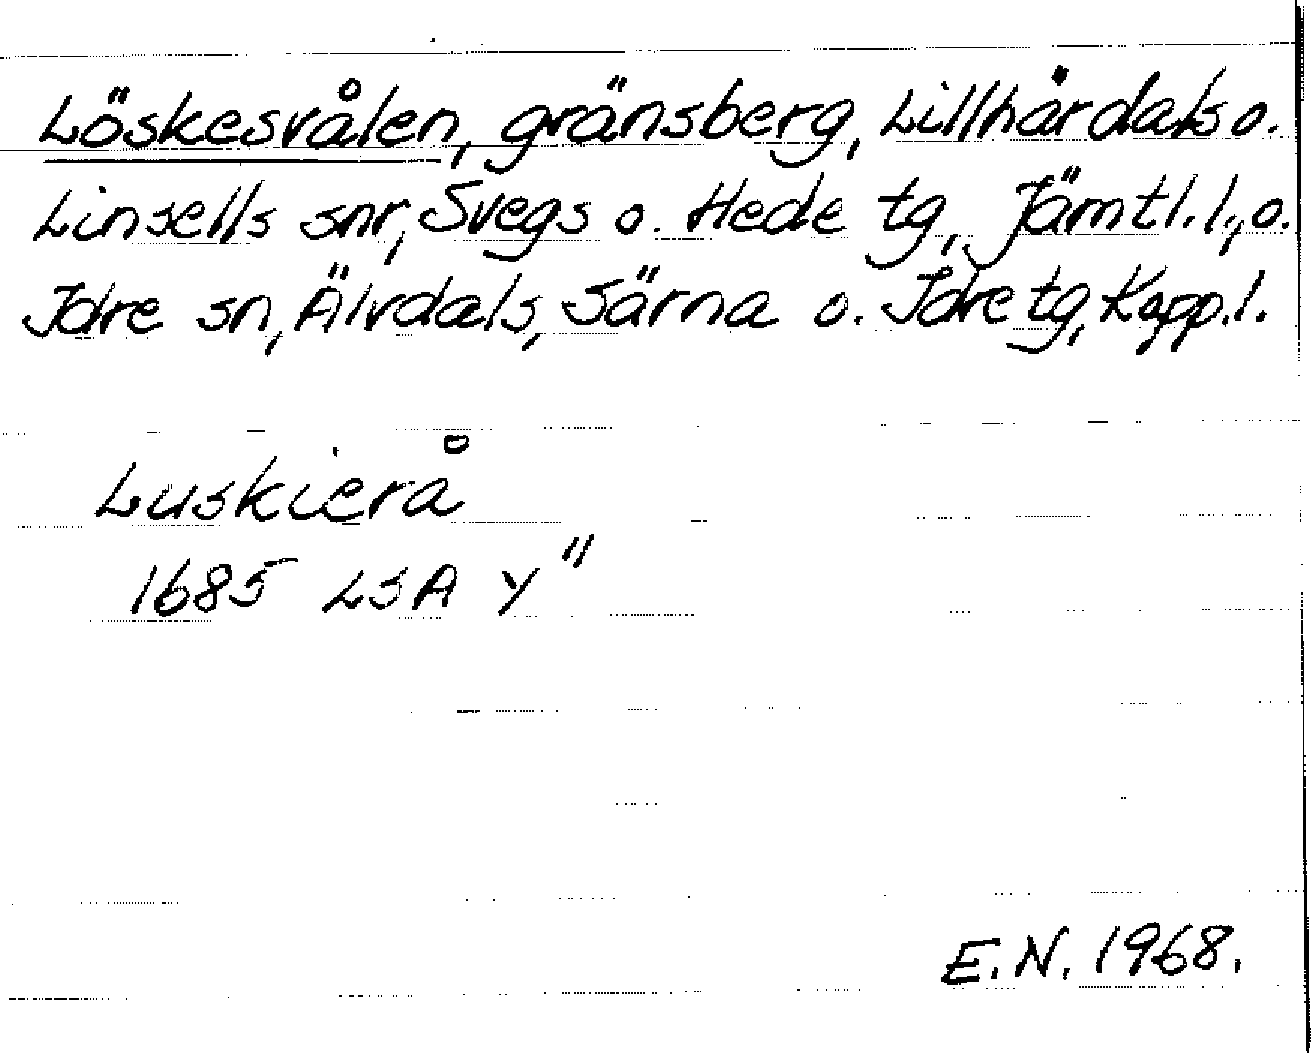 Löskesvålen, gränsberg, Lillhärdals o.
Linsells snr, Svegs o. Hede tg, Jämtl. l., o.
Idre sn, Älvdals, Särna o. Idre tg, Kopp. l.
Luskierå
1685 LSA Y"
E.N. 1968.